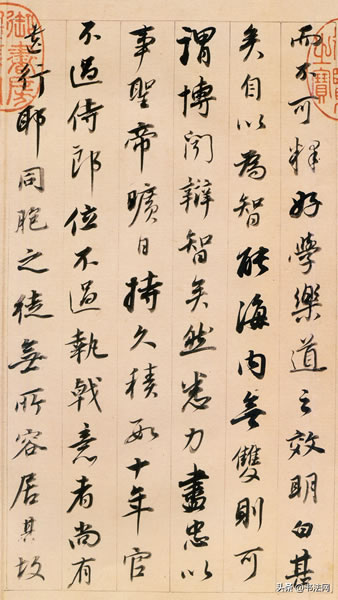 而不可釋好學樂道之效明白甚
矣自以為智能海内無雙則可
謂博聞辯智矣然悉力盡忠以
事聖帝曠日持久積數十年官
不過侍郎位不過執戟意者尚有
遺行耶同胞之徒無所容居其故
御書房
头条@书法网